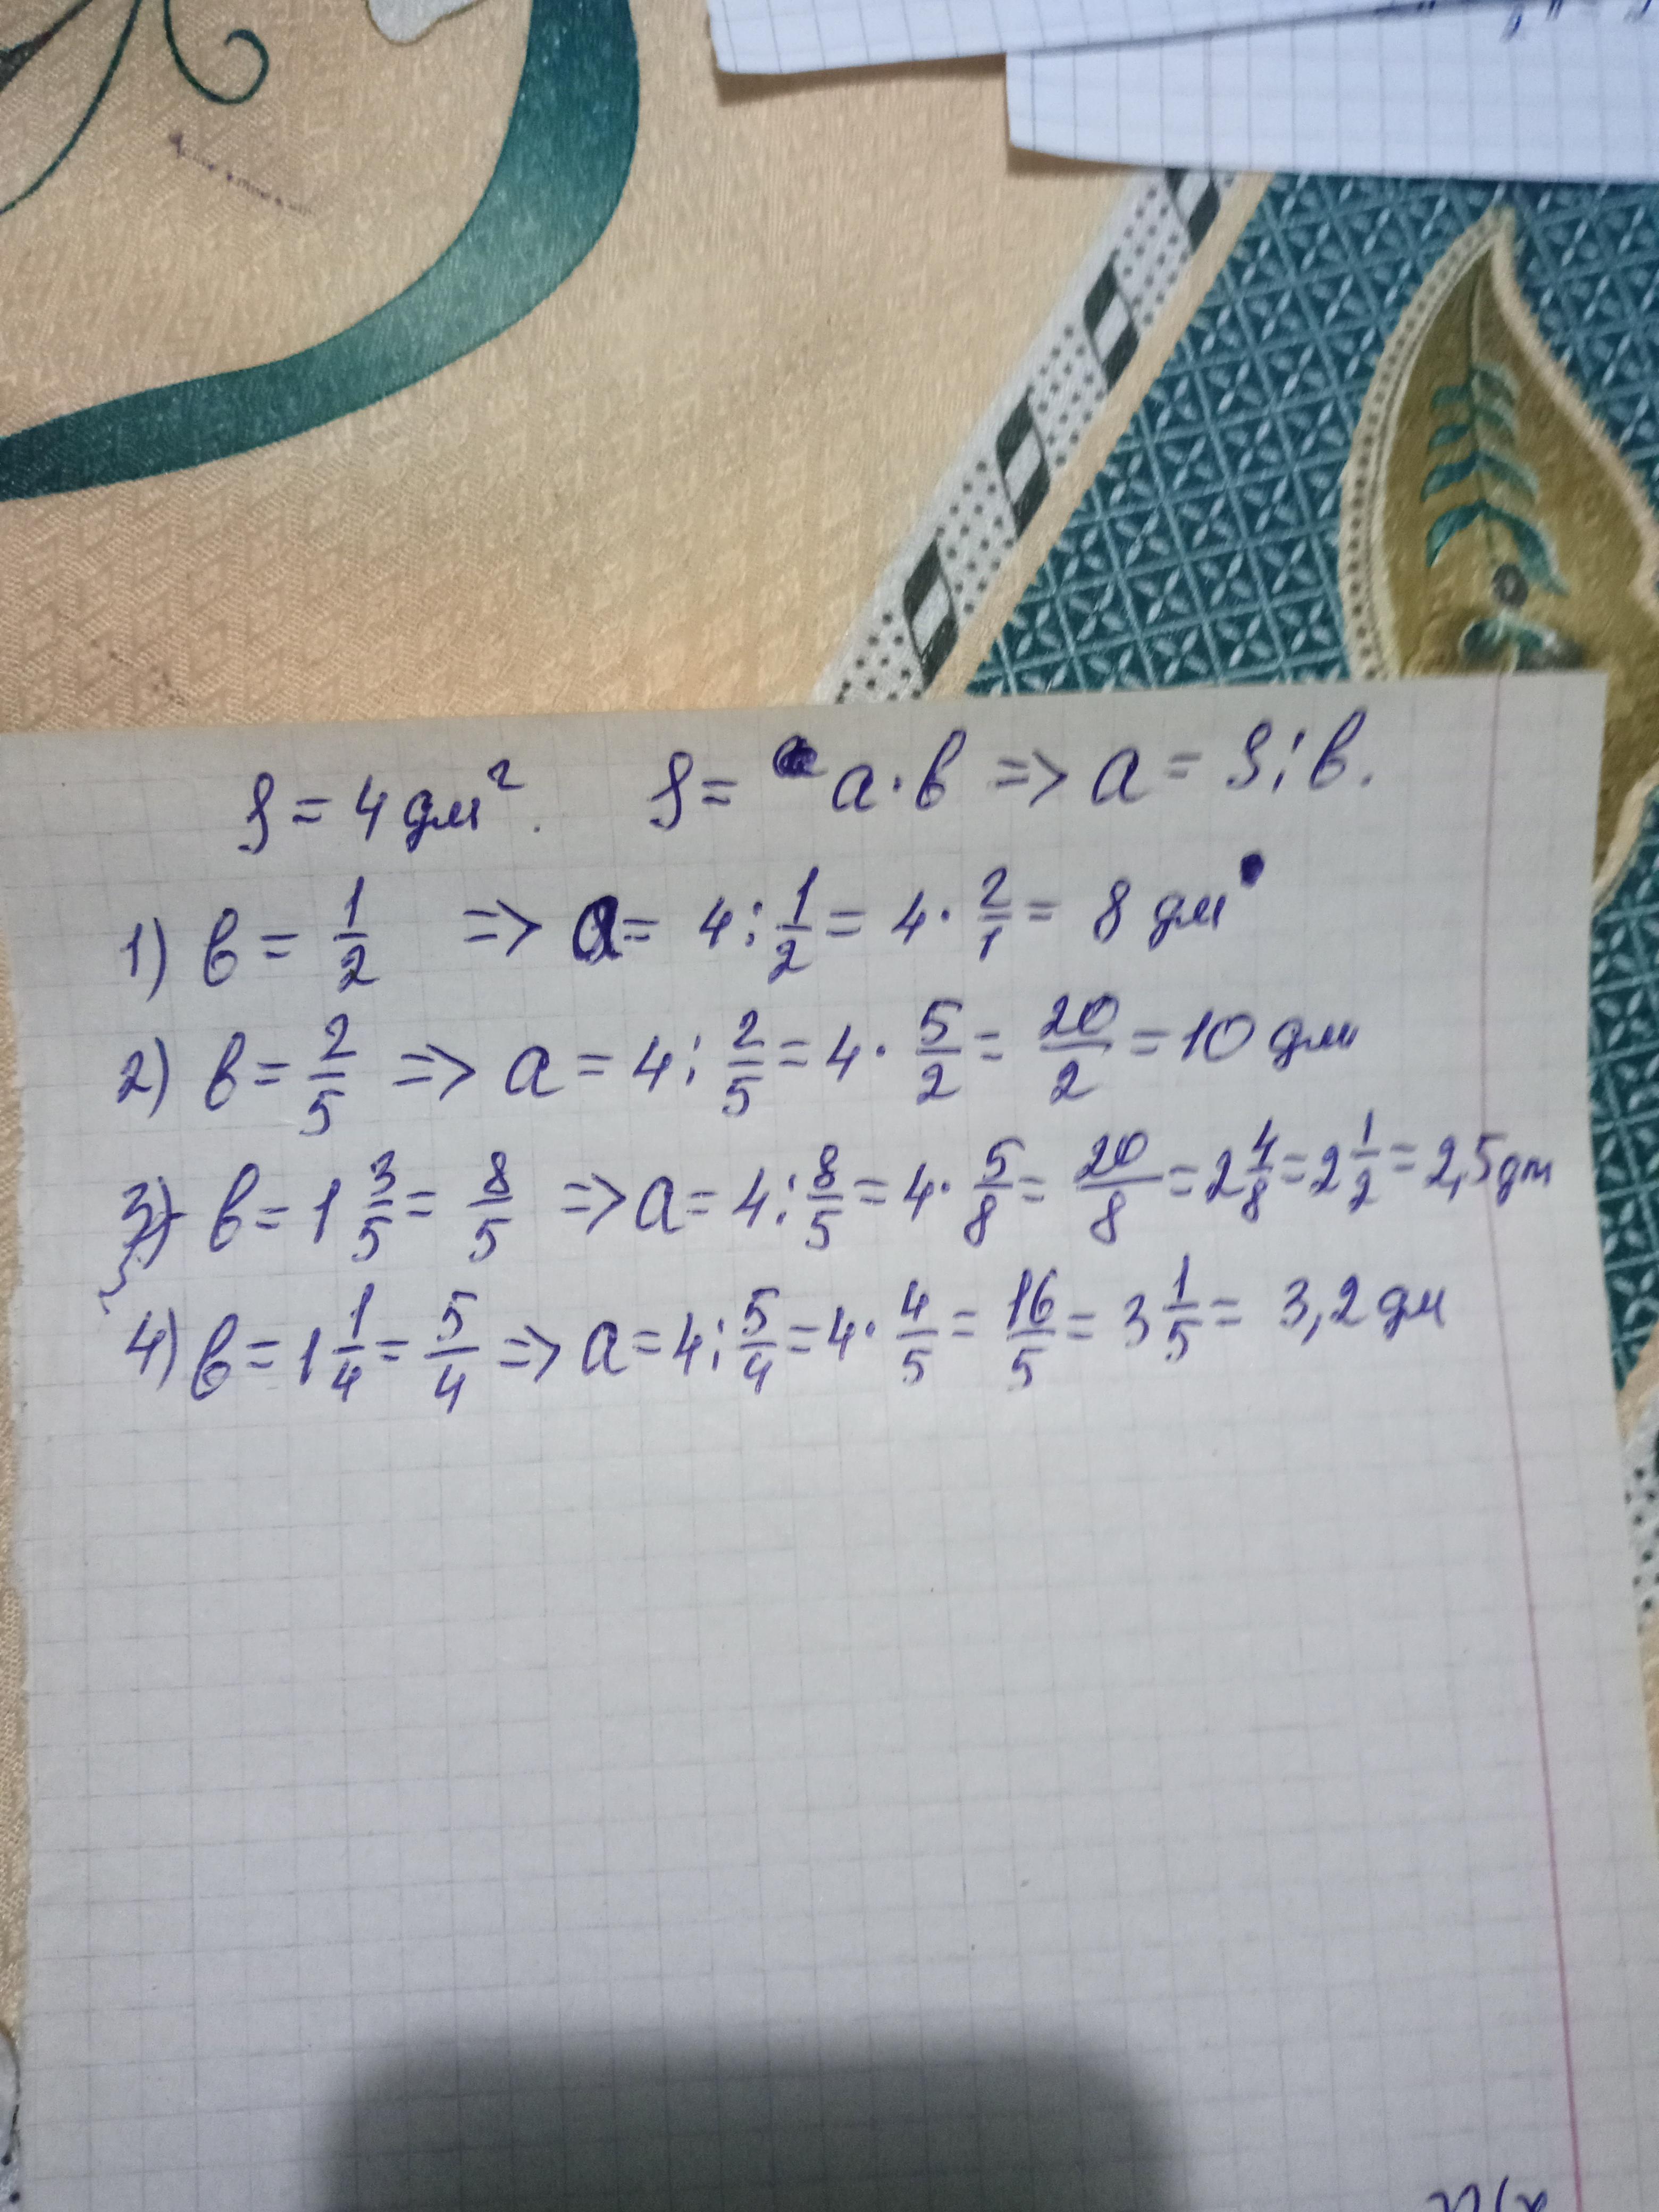 S = 4 дм². S = a · b => a = S : b.
1) b = 1/2 => a = 4 : 1/2 = 4 · 2/1 = 8 дм
2) b = 2/5 => a = 4 : 2/5 = 4 · 5/2 = 20/2 = 10 дм
3) b = 1 3/5 = 8/5 => a = 4 : 8/5 = 4 · 5/8 = 20/8 = 2 4/8 = 2 1/2 = 2,5 дм
4) b = 1 1/4 = 5/4 => a = 4 : 5/4 = 4 · 4/5 = 16/5 = 3 1/5 = 3,2 дм